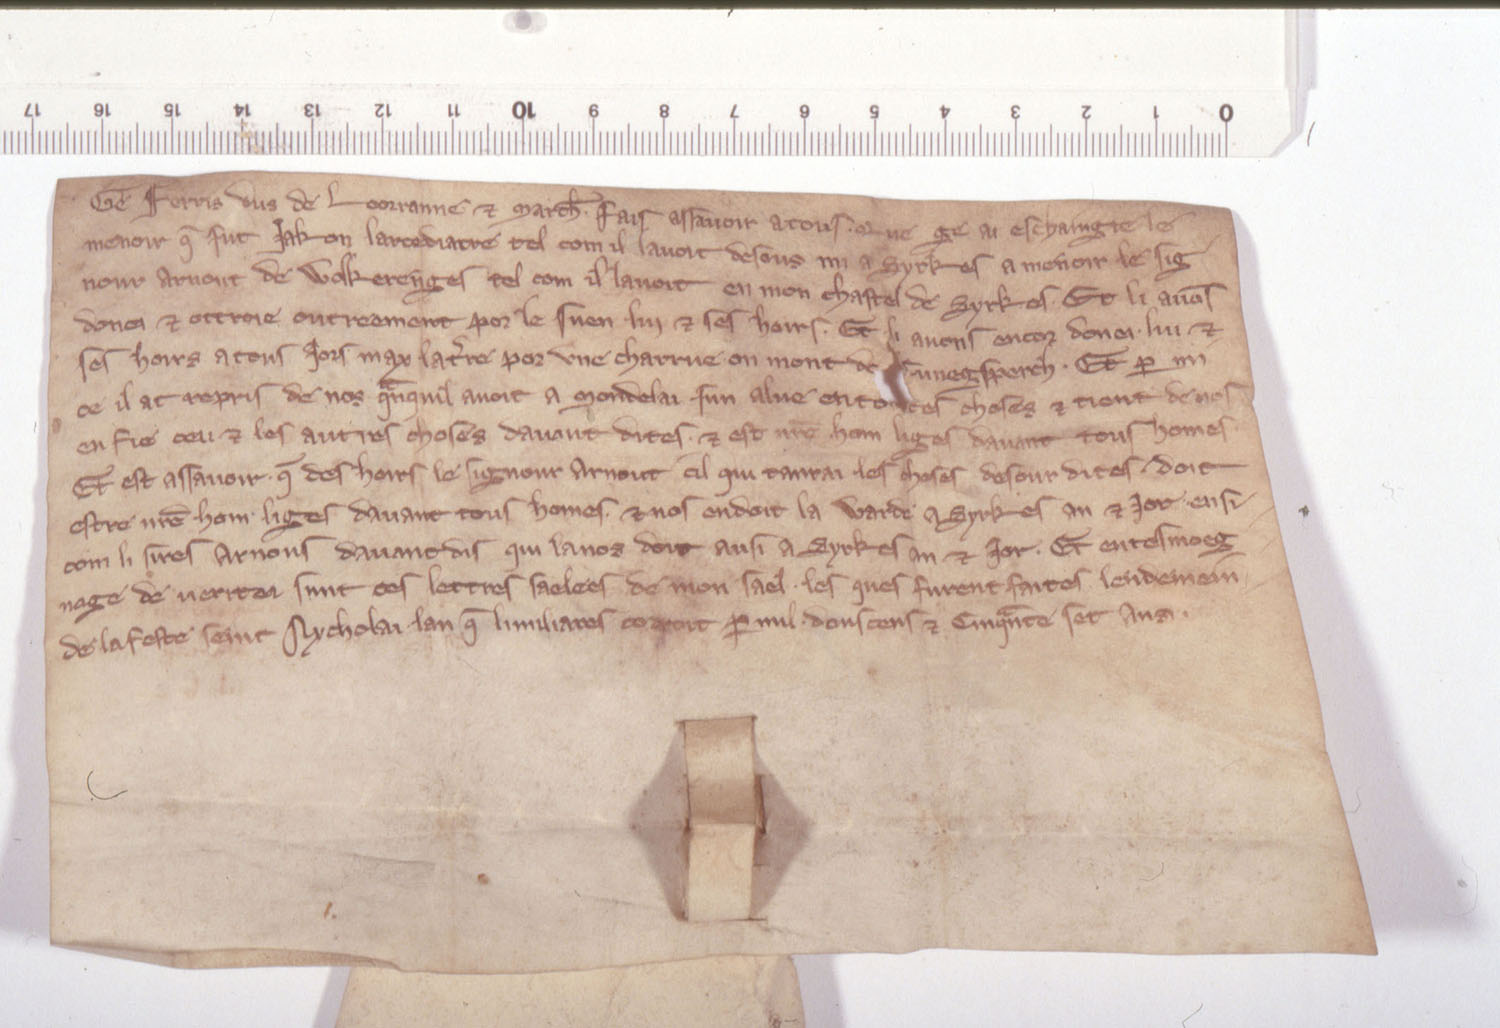 17 16 15 14 13 12 11 10 9 8 7 6 5 4 3 2 1 0
Ge Ferris dus de Loorranne & march̄. fais assauoir a tous. Que ge ai eschaingie le
menoir q̄ fut Jakon larcediacre tel com il lauoit desous mi a Syrkes a menoir le sig
nour arnout de Wolkerenges tel com il lauoit en mon chastel de Syrkes. Et li auōs
donei & ottroie outreement por le suen lui & ses hoirs. Et li auons encor donei. lui &
ses hoirs a tous Jors max la t̄re por vne charrue on mont de Cunegsperch. Et p̄ mi
ce il at repris de nos q̄nquil auoit a Mondelai sun alue en toutes choses & tient de nos
en fie ceu & les autres choses dauant dites. & est nr̄e hom liges dauant tous homes
Et est assauoir. q̄ des hoirs le signour Arnout cil qui tanrai les choses desour dites. doit
estre nr̄e hom liges dauant tous homes. & nos en doit la warde a Syrkes an & Jor. ensi
com li sires Arnous dauant dis qui la nos doit ausi a Syrkes an & Jor. Et en tesmoeg
nage de veritei sunt ces lettres saelees de mon sael. les ques furent faites lendemein
de la feste seint Nycholai. lan q̄ li miliares coroit p̄ mil. douscens & Cinq̄nte set Ans.